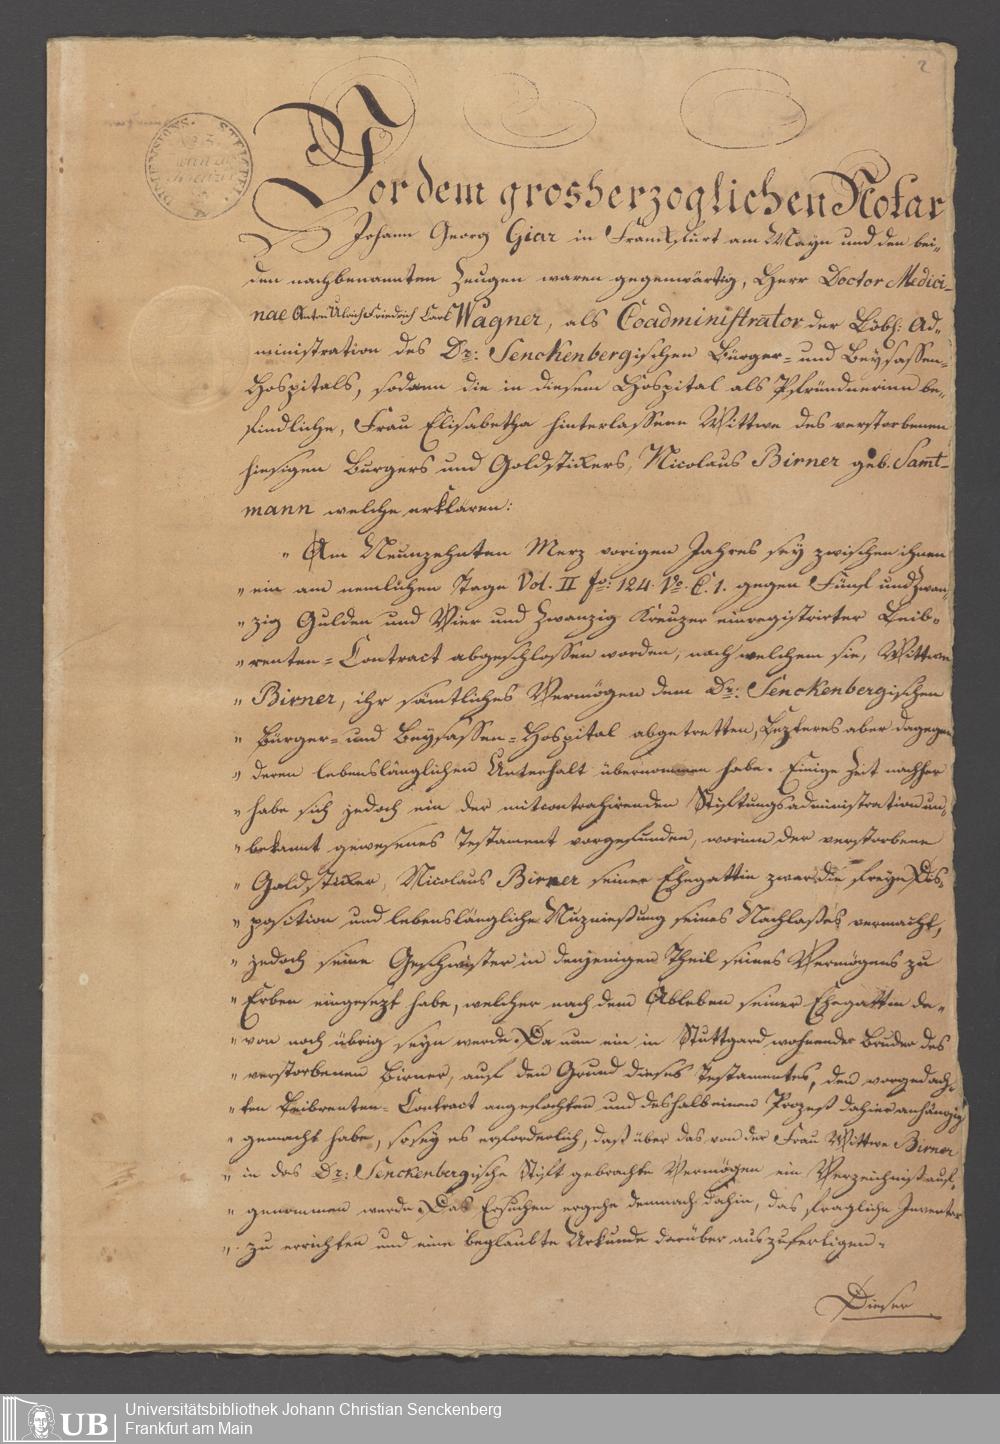 2
DIMENSIONS. STEMPEL.
Vor dem grosherzoglichen Notar
Johann Georg Giar in Frankfurt am Mayn und den bei-
den nachbenannten Zeugen waren gegenwärtig, Herr Doctor Medici-
nae Anton Ulrich Friedrich Carl Wagner, als Coadministrator der Löbl: Ad-
ministration des Dr: Senckenbergischen Bürger- und Beysassen-
Hospitals, sodann die in diesem Hospital als Pfründnerinn be-
findliche, Frau Elisabetha hinterlassene Wittwe des verstorbenen
hiesigen Burgers und Goldstickers, Nicolaus Birner geb. Samt-
mann welche erklären:
" Am Neunzehnten Merz vorigen Jahres sey zwischen ihnen
" ein am nemlichen Tage Vol. II fo: 124. Vo. C. 1. gegen Fünf und Zwan-
" zig Gulden und Vier und Zwanzig Kreuzer einregistrirter Leib-
" renten-Contract abgeschlossen worden, nach welchem sie, Wittwe
" Birner, ihr sämtliches Vermögen dem Dr: Senckenbergischen
" Bürger- und Beysassen-Hospital abgetretten, Lezteres aber dagegen
" deren lebenslänglichen Unterhalt übernommen habe. Einige Zeit nachher
" habe sich jedoch ein der mitcontrahirenden Stiftungsadministration un-
" bekannt gewesenes Testament vorgefunden, worinn der verstorbene
" Goldsticker, Nicolaus Birner seiner Ehegattin zwar die freye Dis-
" position und lebenslängliche Nuznießung seines Nachlaßes vermacht,
" jedoch seine Geschwister in denjenigen Theil seines Vermögens zu
" Erben eingesezt habe, welcher nach dem Ableben seiner Ehegattin da-
" von noch übrig seyn werde. Da nun ein in Stuttgard wohnender Bruder des
" verstorbenen Birner, auf den Grund dieses Testamentes, den vorgedach-
" ten Leibrenten-Contract angefochten und deshalb einen Prozeß dahier anhängig
" gemacht habe, so sey es erforderlich, daß über das von der Frau Wittwe Birner
" in das Dr: Senckenbergische Stift gebrachte Vermögen ein Verzeichniß auf-
" genommen werde. Das Ersuchen ergehe demnach dahin, das fragliche Inventar
" zu errichten und eine beglaubte Urkunde darüber auszufertigen.
Dieser
UB Universitätsbibliothek Johann Christian Senckenberg
Frankfurt am Main